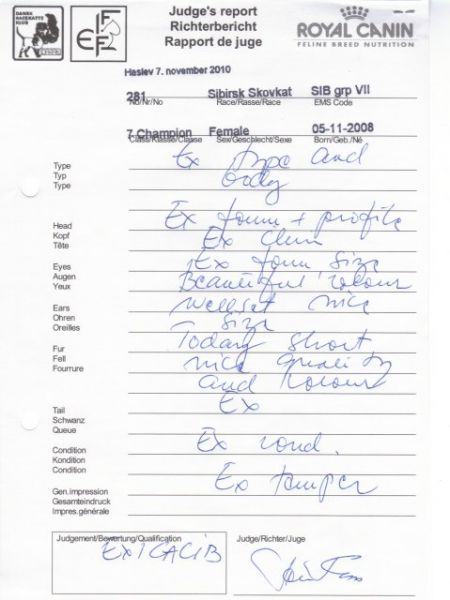 DANSK
RACEKATTE
KLUB
FIFe
Judge's report
Richterbericht
Rapport de juge
ROYAL CANIN
FELINE BREED NUTRITION
Haslev 7. november 2010
281 Sibirsk Skovkat SIB grp VII
No/Nr/No Race/Rasse/Race EMS Code
7 Champion Female 05-11-2008
Class/Klasse/Classe Sex/Geschlecht/Sexe Born/Geb./Né
Type Ex type and
Typ body
Type
Head Ex form + profile
Kopf Ex chin
Tête
Eyes Ex form size
Augen Beautiful colour
Yeux
Ears wellset nice
Ohren size
Oreilles
Fur Today short
Fell nice quality
Fourrure and colour
Tail Ex
Schwanz
Queue
Condition Ex cond.
Kondition
Condition
Gen.impression Ex temper
Gesamteindruck
Impres.générale
Judgement/Bewertung/Qualification Judge/Richter/Juge
EX1CACIB